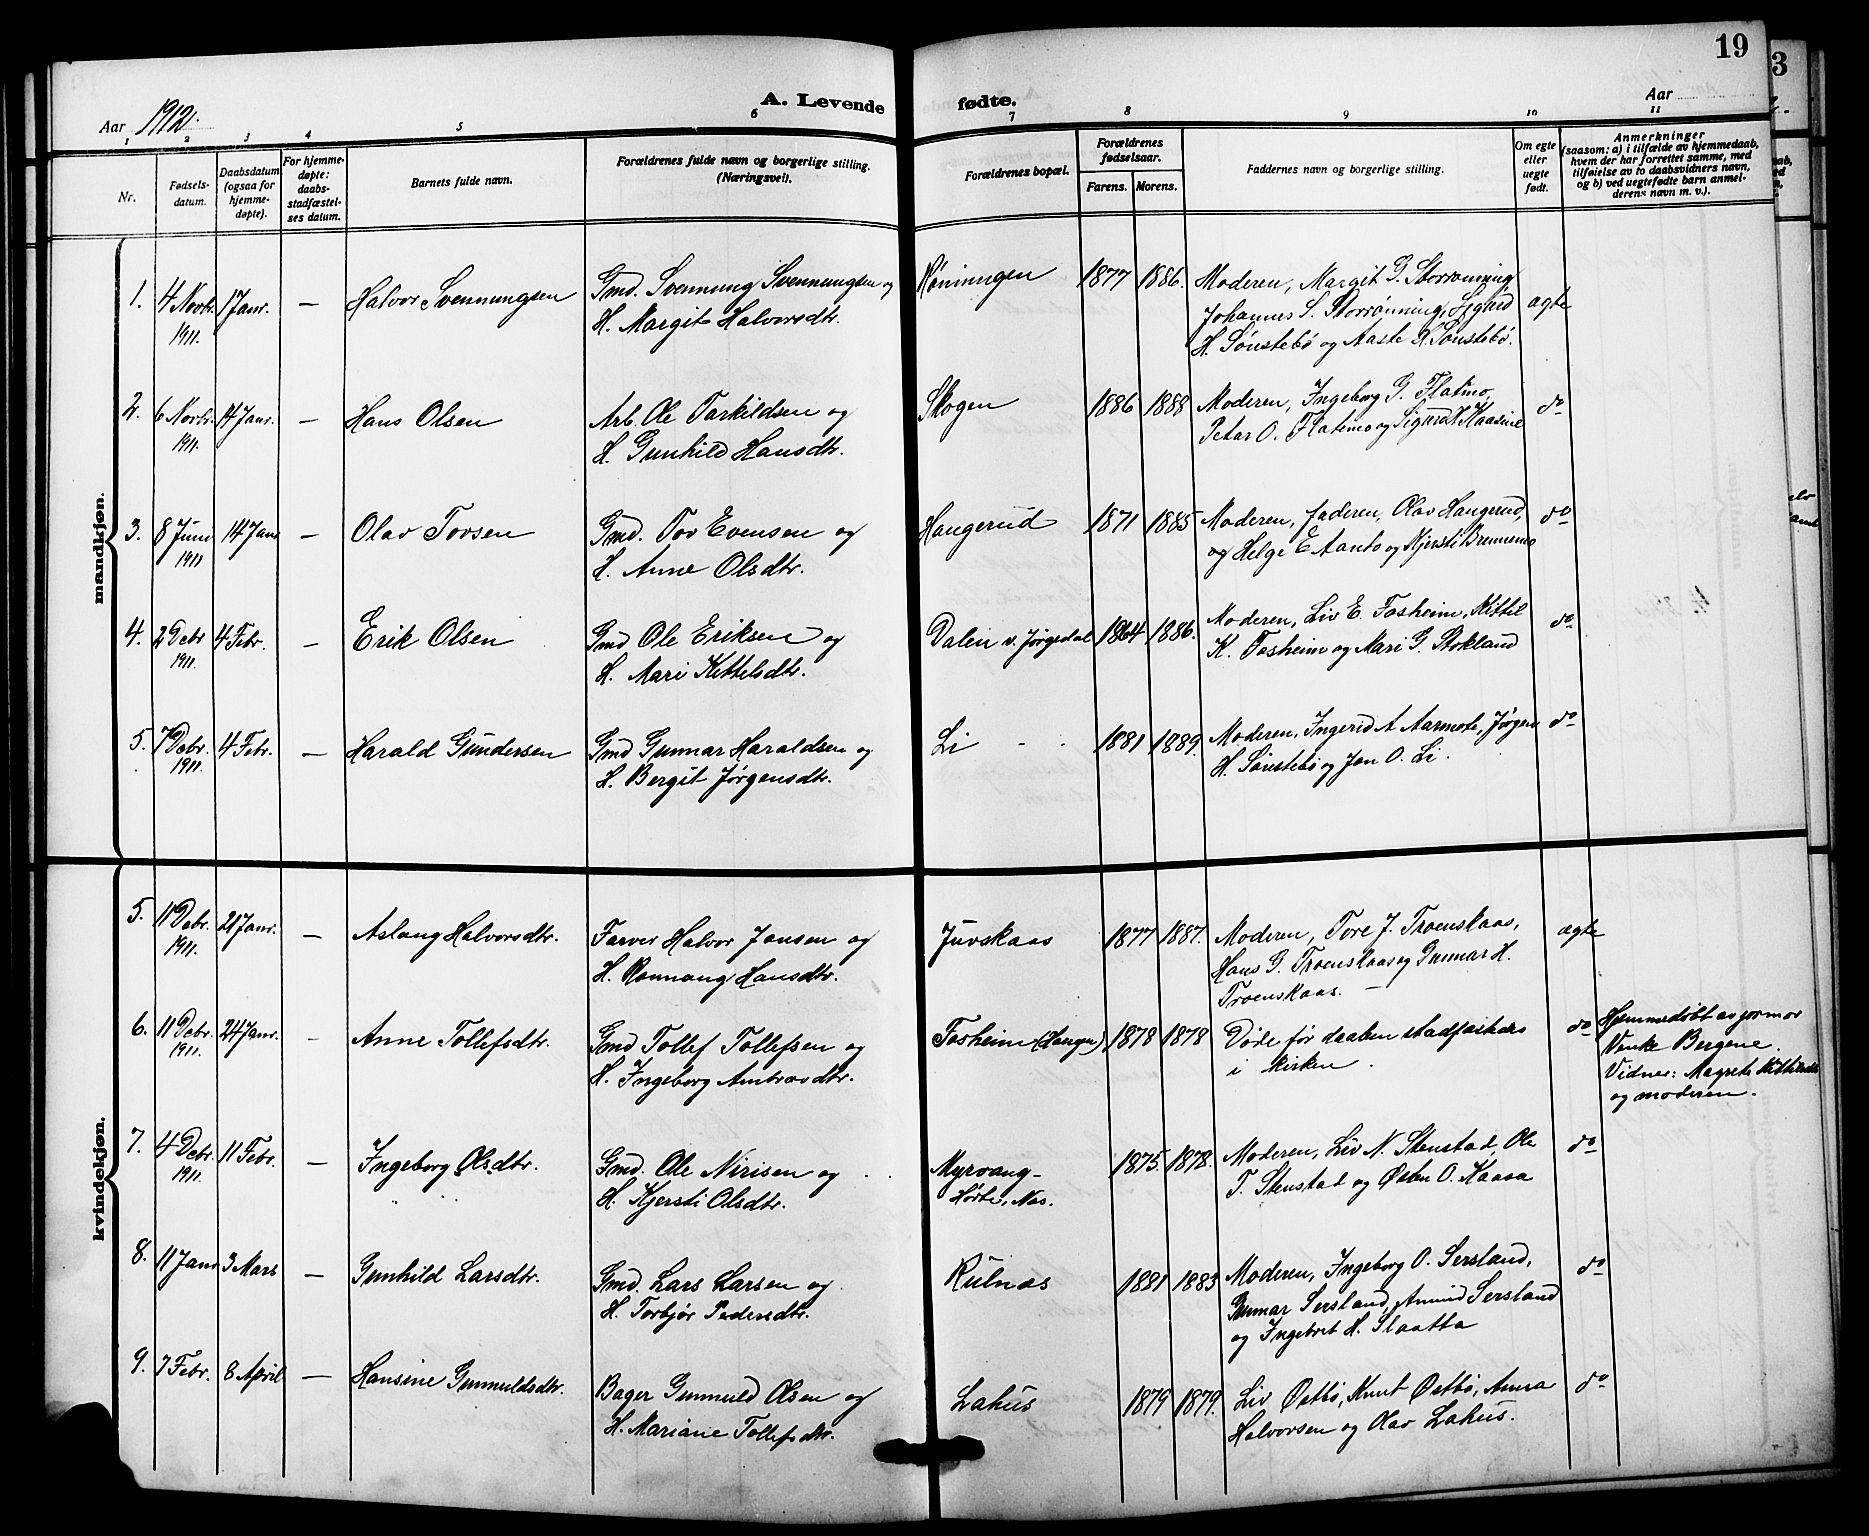 19
Aar 1912.
A. Levende fødte.
Aar
1 2 3 4 5 6 7 8 9 10 11
Nr.
Fødsels-
datum.
Daabsdatum
(ogsaa for
hjemme-
døpte).
For hjemme-
døpte:
daabs-
stadfæstel-
ses datum.
Barnets fulde navn.
Forældrenes fulde navn og borgerlige stilling.
(Næringsvei).
Forældrenes bopæl.
Forældrenes
fødselsaar.
Farens. Morens.
Faddernes navn og borgerlige stilling.
Om egte
eller
uegte
født.
Anmerkninger
(saasom: a) i tilfælde av hjemmedaab,
hvem der har forrettet samme, med
tilføielse av to daabsvidners navn,
og b) ved uegtefødte barn anmel-
derens navn m. v.).
mandkjøn.
1. 4 Novbr. 1 Janr. — Halvor Svennungsen
1911.
Gmd. Svennung Svennungsen og
H. Margit Halvorsdtr.
Röningen 1877 1886.
Moderen, Margit G. Storrönning
Johannes S. Storrönning, Sigurd
H. Sönstebö og Aaste K. Sönstebö.
ægte
2. 6 Novbr. 14 Janr. — Hans Olsen
1911.
Arb. Ole Tarkildsen og
H. Gunhild Hansdtr.
Skogen 1886 1888
Moderen, Ingeborg G. Flatmo,
Petar O. Flatmo og Sigurd H. Kaasine
do
3. 8 Juni 14 Janr — Olav Tovsen
1911
Gmd. Tov Evensen og
H. Anne Olsdtr.
Haugerud 1871 1885
Moderen, faderen, Olav Haugerud,
og Helge E. Aanto og Kjersti Brennemo
do
4. 2 Debr 4 Febr. — Erik Olsen
1911.
Gmd Ole Eriksen og
H. Mari Kittelsdtr.
Dalen v. Jørgedal 1864 1886.
Moderen, Liv E. Fosheim, Kittel
K. Fosheim og Mari G. Stokland
do
5. 7 Debr. 4 Febr. — Harald Gundersen
1911.
Gmd Gunnar Haraldsen og
H. Bergit Jørgensdtr.
Li 1881 1889.
Moderen, Ingerid A. Aarmote, Jørgen
H. Sönstebö og Jon O. Li.
do
kvindekjøn.
5. 11 Debr. 21 Janr. — Aslaug Halvorsdtr.
1911.
Farver Halvor Jansen og
H. Rannaug Hansdtr.
Juvskaas 1877 1887.
Moderen, Tore J. Troenskaas,
Hans G. Troenskaas og Gunnar H.
Troenskaas. —
ægte
6. 11 Debr. 24 Janr. - Anne Tollefsdtr.
1911.
Gmd Tollef Tollefsen og
H. Ingeborg Ambrosdtr.
Fosheim (Haugen) 1878 1878
Døde før daaben stadfæstedes
i kirken.
do
Hjemmedöbt av jormor
Venke Bergene.
Vidner: Magrete Kittilsdtr
og moderen.
7. 4 Debr. 11 Febr. — Ingeborg Olsdtr.
1911.
Gmd. Ole Nirisen og
H. Kjersti Olsdtr.
Myrvang-
Hörte, Nes.
1875. 1878.
Moderen, Liv N. Stenstad, Ole
T. Stenstad og Østen O. Kaasa
do
8. 11 Janr 3 Mars — Gunhild Larsdtr.
Gmd. Lars Larsen og
H. Torbjør Pedersdtr.
Kulnæs 1881 1883
Moderen, Ingeborg O. Sersland,
Gunnar Sersland, Amund Sersland
og Ingebret H. Slaatta
do
9. 7 Febr. 8 April — Hansine Gunnuldsdtr.
Bager Gunnuld Olsen og
H. Mariane Tollefsdtr.
Lahus 1879 1879.
Liv Østbö, Knut Østbö, Anna
Halvorsen og Olav Lahus.
do